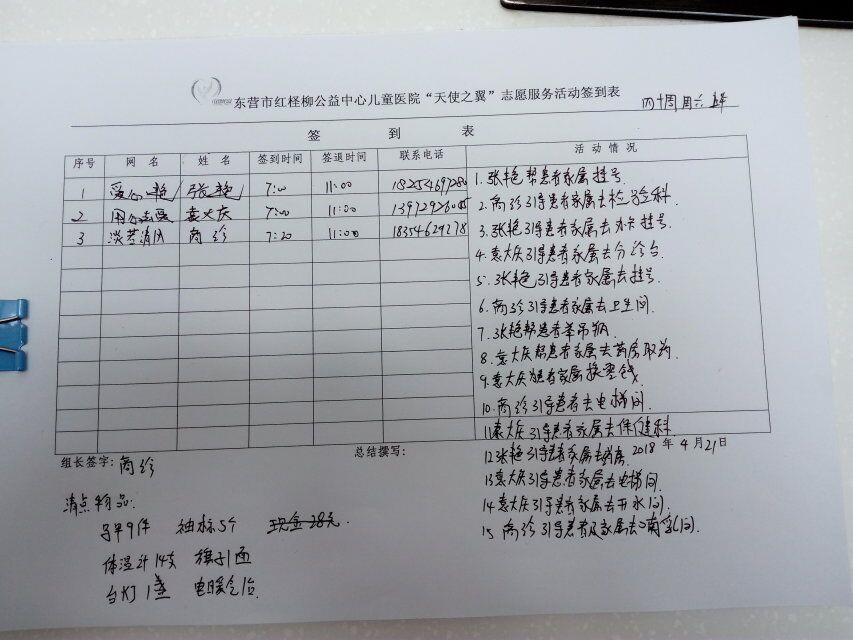 东营市红柽柳公益中心儿童医院“天使之翼”志愿服务活动签到表
四十周周六
签到表
序号 网名 姓名 签到时间 签退时间 联系电话 活动情况
1 爱心艳 张艳 7:00 11:00 18254697280
2 袁大庆 7:00 11:00
3 商珍 7:20 11:00 18354629278
1.张艳帮患者家属挂号.
2.商珍引导患者家属去检验科
3.张艳引导患者家属去办卡挂号.
4.袁大庆引导患者家属去分诊台
5.张艳引导患者家属去挂号.
6.商珍引导患者家属去卫生间.
7.张艳帮患者举吊瓶
8.袁大庆帮患者家属去药房取药.
9.袁大庆为患者家属换零钱
10.商珍引导患者去电梯间.
11.袁大庆引导患者家属去保健科
组长签字:商珍
总结撰写:
2018年4月21日
12.张艳引导患者家属去
13.袁大庆引导患者家属去电梯间.
14.袁大庆引导患者家属去开水间.
15.商珍引导患者及家属去哺乳间.
清点物品:
马甲9件 袖标5个 现金28元.
体温计14支 旗子1面
台灯1盏 电暖气1台.